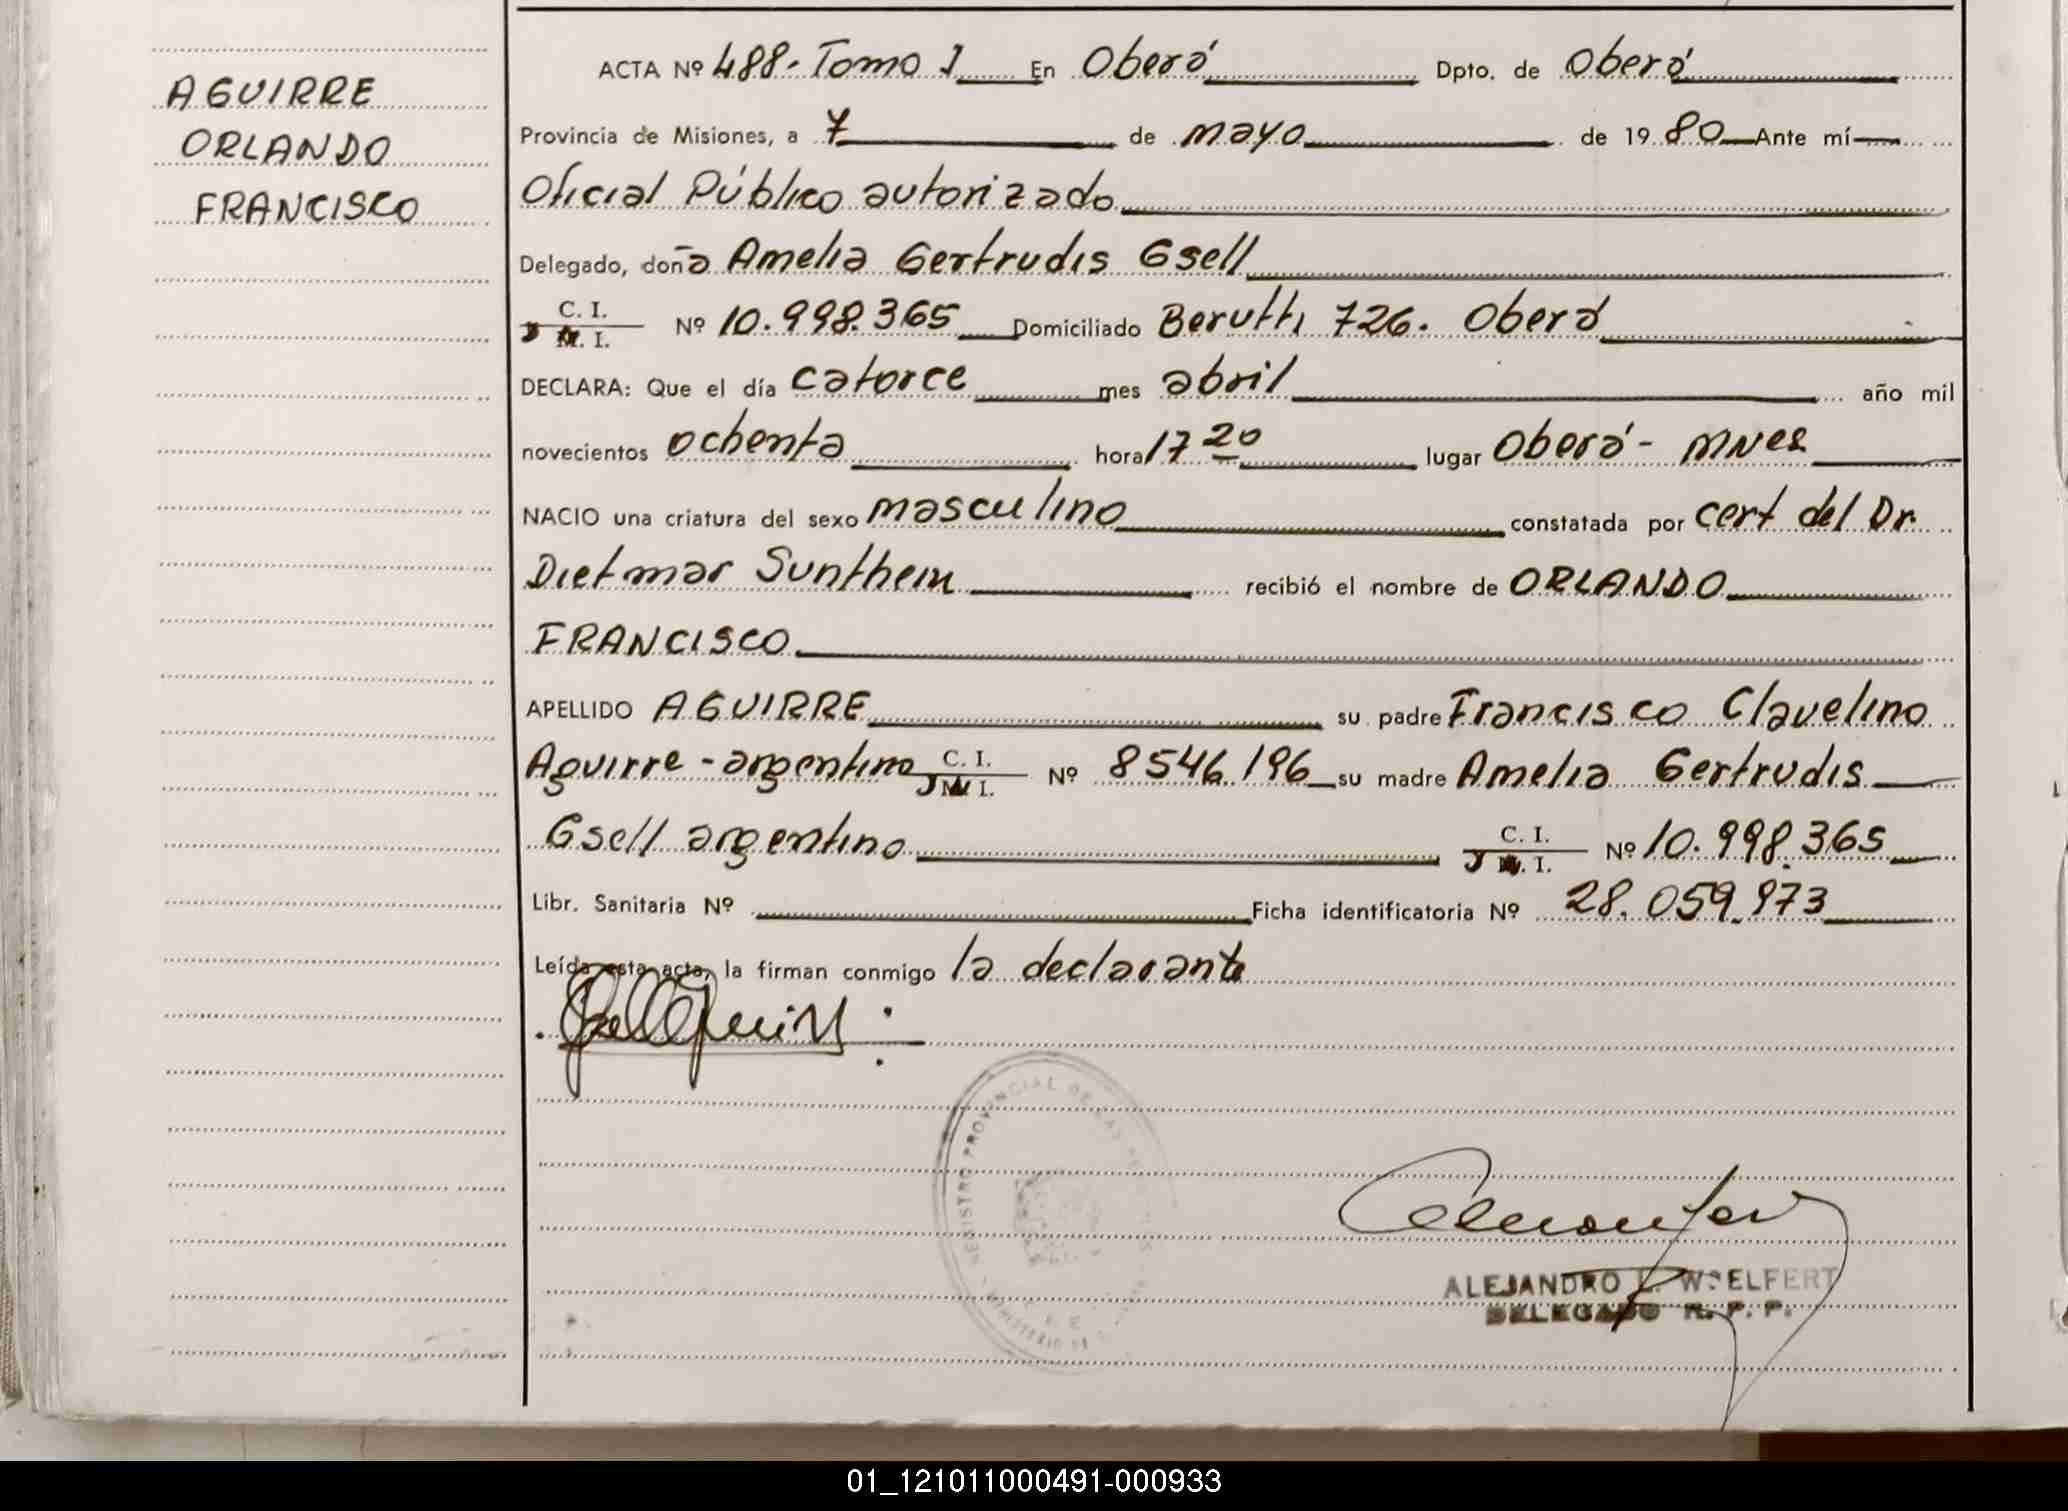 AGUIRRE
ORLANDO
FRANCISCO
ACTA Nº 488. Tomo I En Oberá Dpto. de Oberá
Provincia de Misiones, a 7 de mayo de 1980 Ante mí
Oficial Público autorizado
Delegado, doña Amelia Gertrudis Gsell
C. I.
M. I. Nº 10.998.365 Domiciliado Berutti 726. Oberá
DECLARA: Que el día catorce mes abril año mil
novecientos ochenta hora 17 20 lugar Oberá - MNES
NACIO una criatura del sexo masculino constatada por cert del Dr.
Dietmar Sunthein recibió el nombre de ORLANDO
FRANCISCO
APELLIDO AGUIRRE su padre Francisco Clavelino
Aguirre - argentino C. I. M. I. Nº 8546.196 su madre Amelia Gertrudis
Gsell argentino C. I. M. I. Nº 10.998.365
Libr. Sanitaria Nº Ficha identificatoria Nº 28.059.973
Leída esta acta, la firman conmigo la declarante
REGISTRO PROVINCIAL DE LAS
ALEJANDRO L. WOELFERT
DELEGADO R. P. P.
01_121011000491-000933